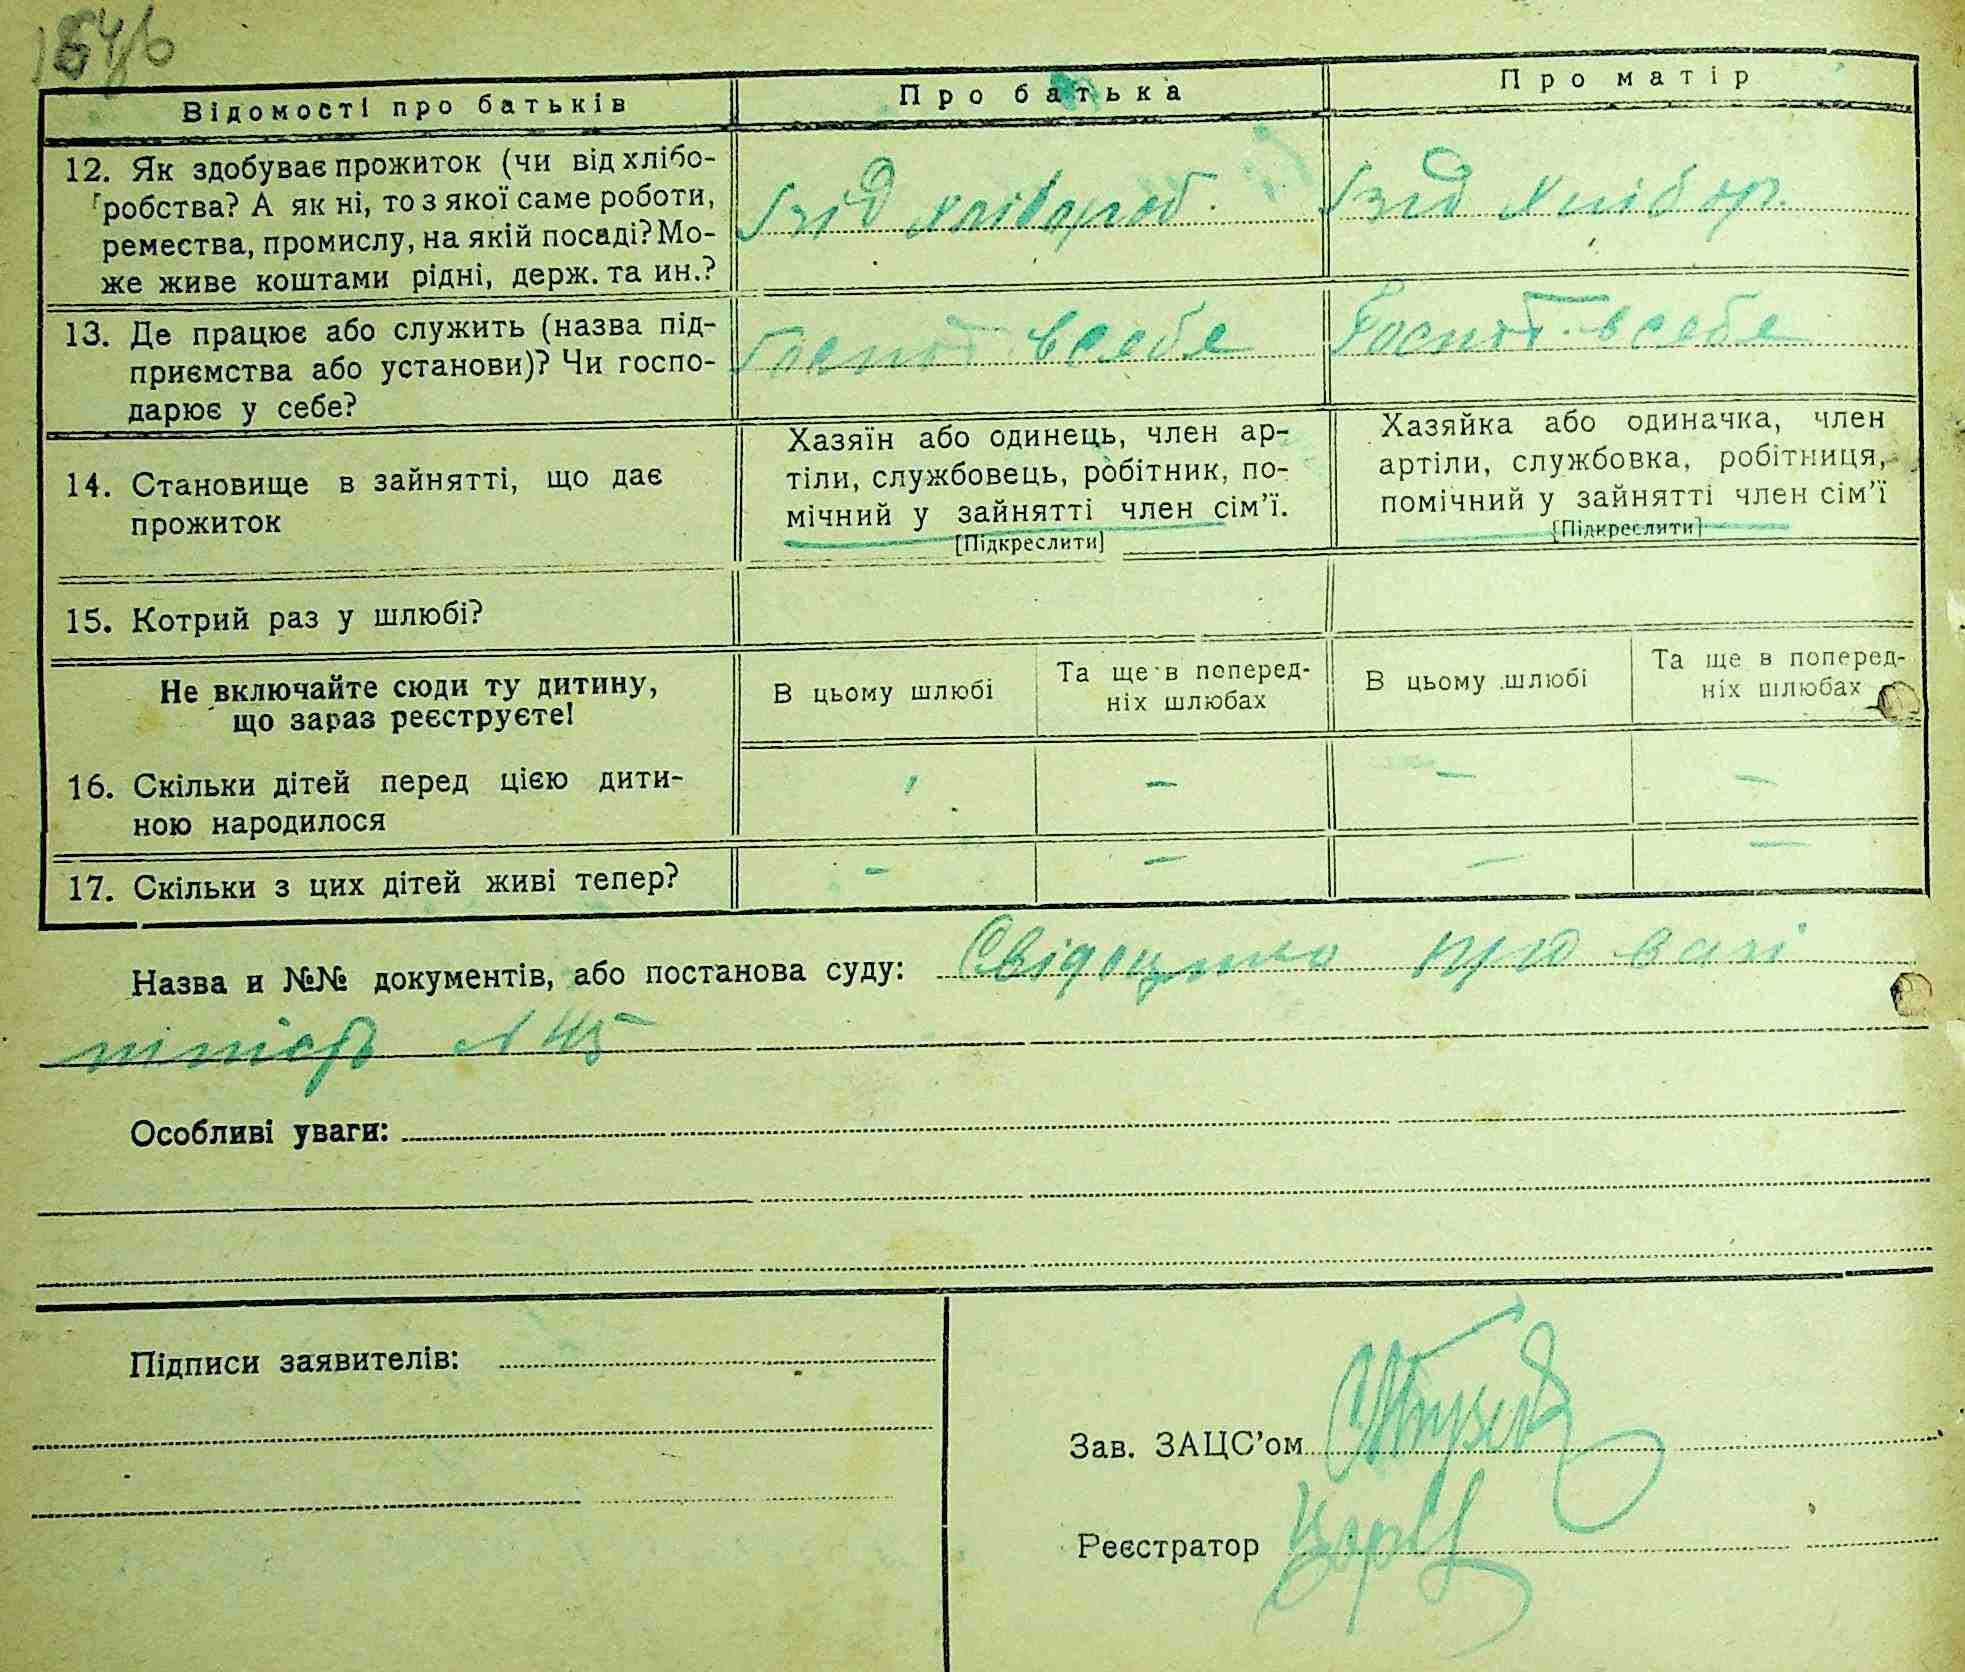 Відомості про батьків
Про батька
Про матір
12. Як здобуває прожиток (чи від хлібо-
робства? А як ні, то з якої саме роботи,
ремества, промислу, на якій посаді? Мо-
же живе коштами рідні, держ. та ин.?
від хлібороб.
від хлібор.
13. Де працює або служить (назва під-
приємства або установи)? Чи госпо-
дарює у себе?
Господ. в себе
Господ. в себе
14. Становище в зайнятті, що дає
прожиток
Хазяїн або одинець, член ар-
тіли, службовець, робітник, по-
мічний у зайнятті член сім'ї.
[Підкреслити]
Хазяйка або одиначка, член
артіли, службовка, робітниця,
помічний у зайнятті член сім'ї
[Підкреслити]
15. Котрий раз у шлюбі?
Не включайте сюди ту дитину,
що зараз реєструєте!
В цьому шлюбі
Та ще в поперед-
ніх шлюбах
В цьому шлюбі
Та ще в поперед-
ніх шлюбах
16. Скільки дітей перед цією дити-
ною народилося
– – –
17. Скільки з цих дітей живі тепер?
– – – –
Назва и №№ документів, або постанова суду: Свідоцтво про вагі
тність №
Особливі уваги:
Підписи заявителів:
Зав. ЗАЦС'ом
Реєстратор